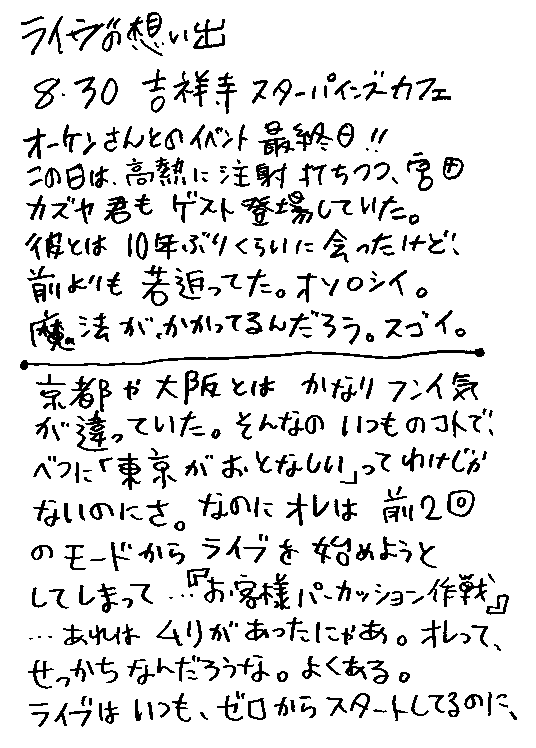 ライヴの想い出
8.30 吉祥寺 スターパインズカフェ
オーケンさんとのイベント 最終日!!
この日は、高熱に注射打ちつつ、宮田
カズヤ君も ゲスト登場していた。
彼とは 10年ぶりくらいに 会ったけど、
前よりも 若返ってた。オソロシイ。
魔法が、かかってるんだろう。スゴイ。
京都や大阪とは かなりフンイ気
が違っていた。そんなの いつものコトで、
ベつに「東京がおとなしい」ってわけじゃ
ないのにさ。なのに オレは 前2回
のモードから ライブを 始めようと
してしまって…『お客様パーカッション作戦』
…あれは ムリがあったにゃあ。オレって、
せっかちなんだろうな。よくある。
ライブは いつも、ゼロから スタートしてるのに、